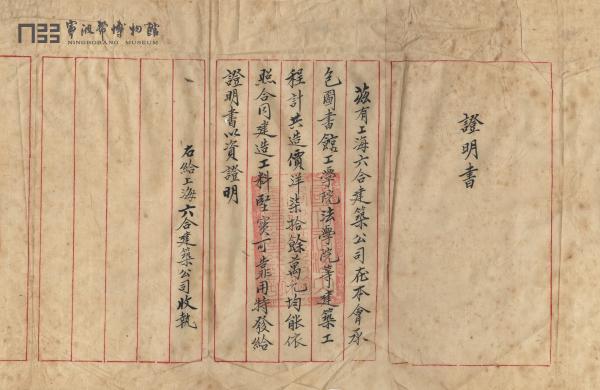 寧波幫博物館
NINGBOBANG MUSEUM
證明書
茲有上海六合建築公司在本會承
包圖書館工學院法學院等建築工
程計共造價洋柒拾餘萬元均能依
照合同建造工料堅實可靠用特發給
證明書以資證明
右給上海六合建築公司收執